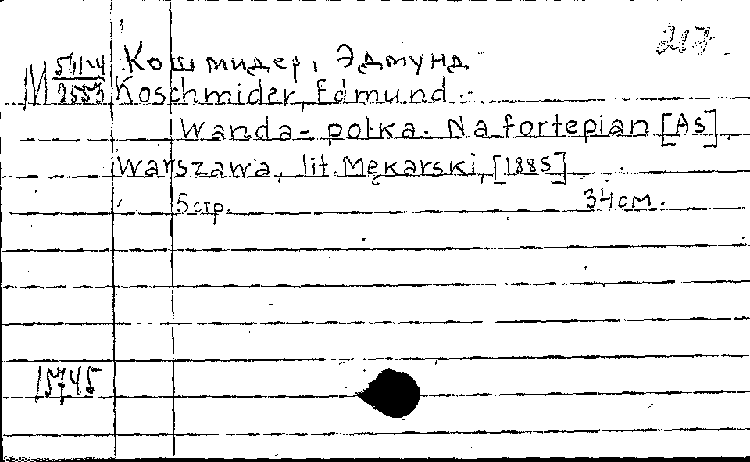 217.
Кошмидер, Эдмунд
Koschmider, Edmund.
Wanda-polka. Na fortepian [As].
Warszawa, lit. Mękarski, [1885]
5 стр. 34 см.
15745